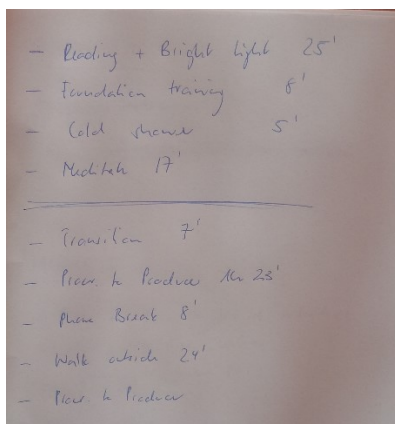 - Reading + Bright light 25'
- Foundation training 8'
- Cold shower 5'
- Meditate 17'
- Transition 7'
- to Producer 1h 23'
- Phone Break 8'
- Walk outside 24'
- to Producer